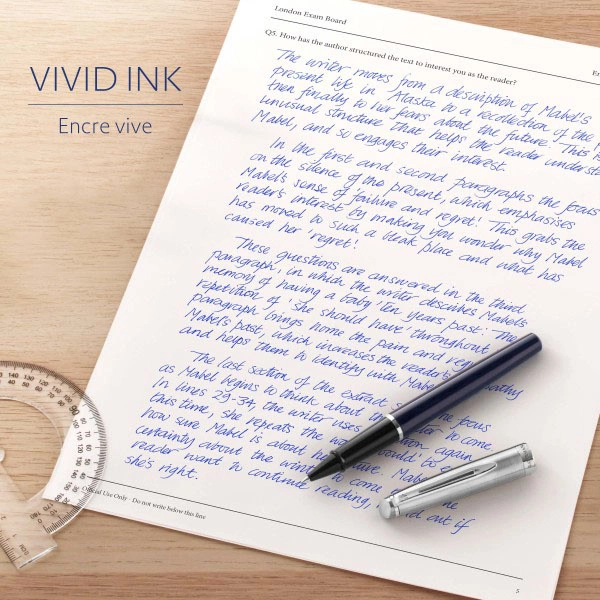 VIVID INK
Encre vive
London Exam Board
Q5. How has the author structured the text to interest you as the reader?
The writer moves from a description of Mabel's
present life in Alaska to a recollection of the
then finally to her fears about the future. This is
unusual structure that helps the reader understa
Mabel, and so engages their interest.
In the first and second paragraphs the focus
on the silence of the present, which emphasises
Mabel's sense of 'failure and regret'. This grabs the
reader's interest by making you wonder why Mabel
has moved to such a bleak place and what has
caused her 'regret'.
These questions are answered in the third
paragraph, in which the writer describes Mabel's
memory of having a baby 'ten years past'. The
repetition of 'she should have' throughout
paragraph brings home the pain and regr
Mabel's past, which increases the reader's pathy
and helps them to identify with Mabel
The last section of the extract the focus
as Mabel begins to think about the ter to come.
In lines 29-34, the writer uses ion again
this time, she repeats the wo would be
how sure Mabel is about he Mabel
certainty about the wint to come
reader want to continue reading, d out if
she's right.
Official Use Only - Do not write below this line
5